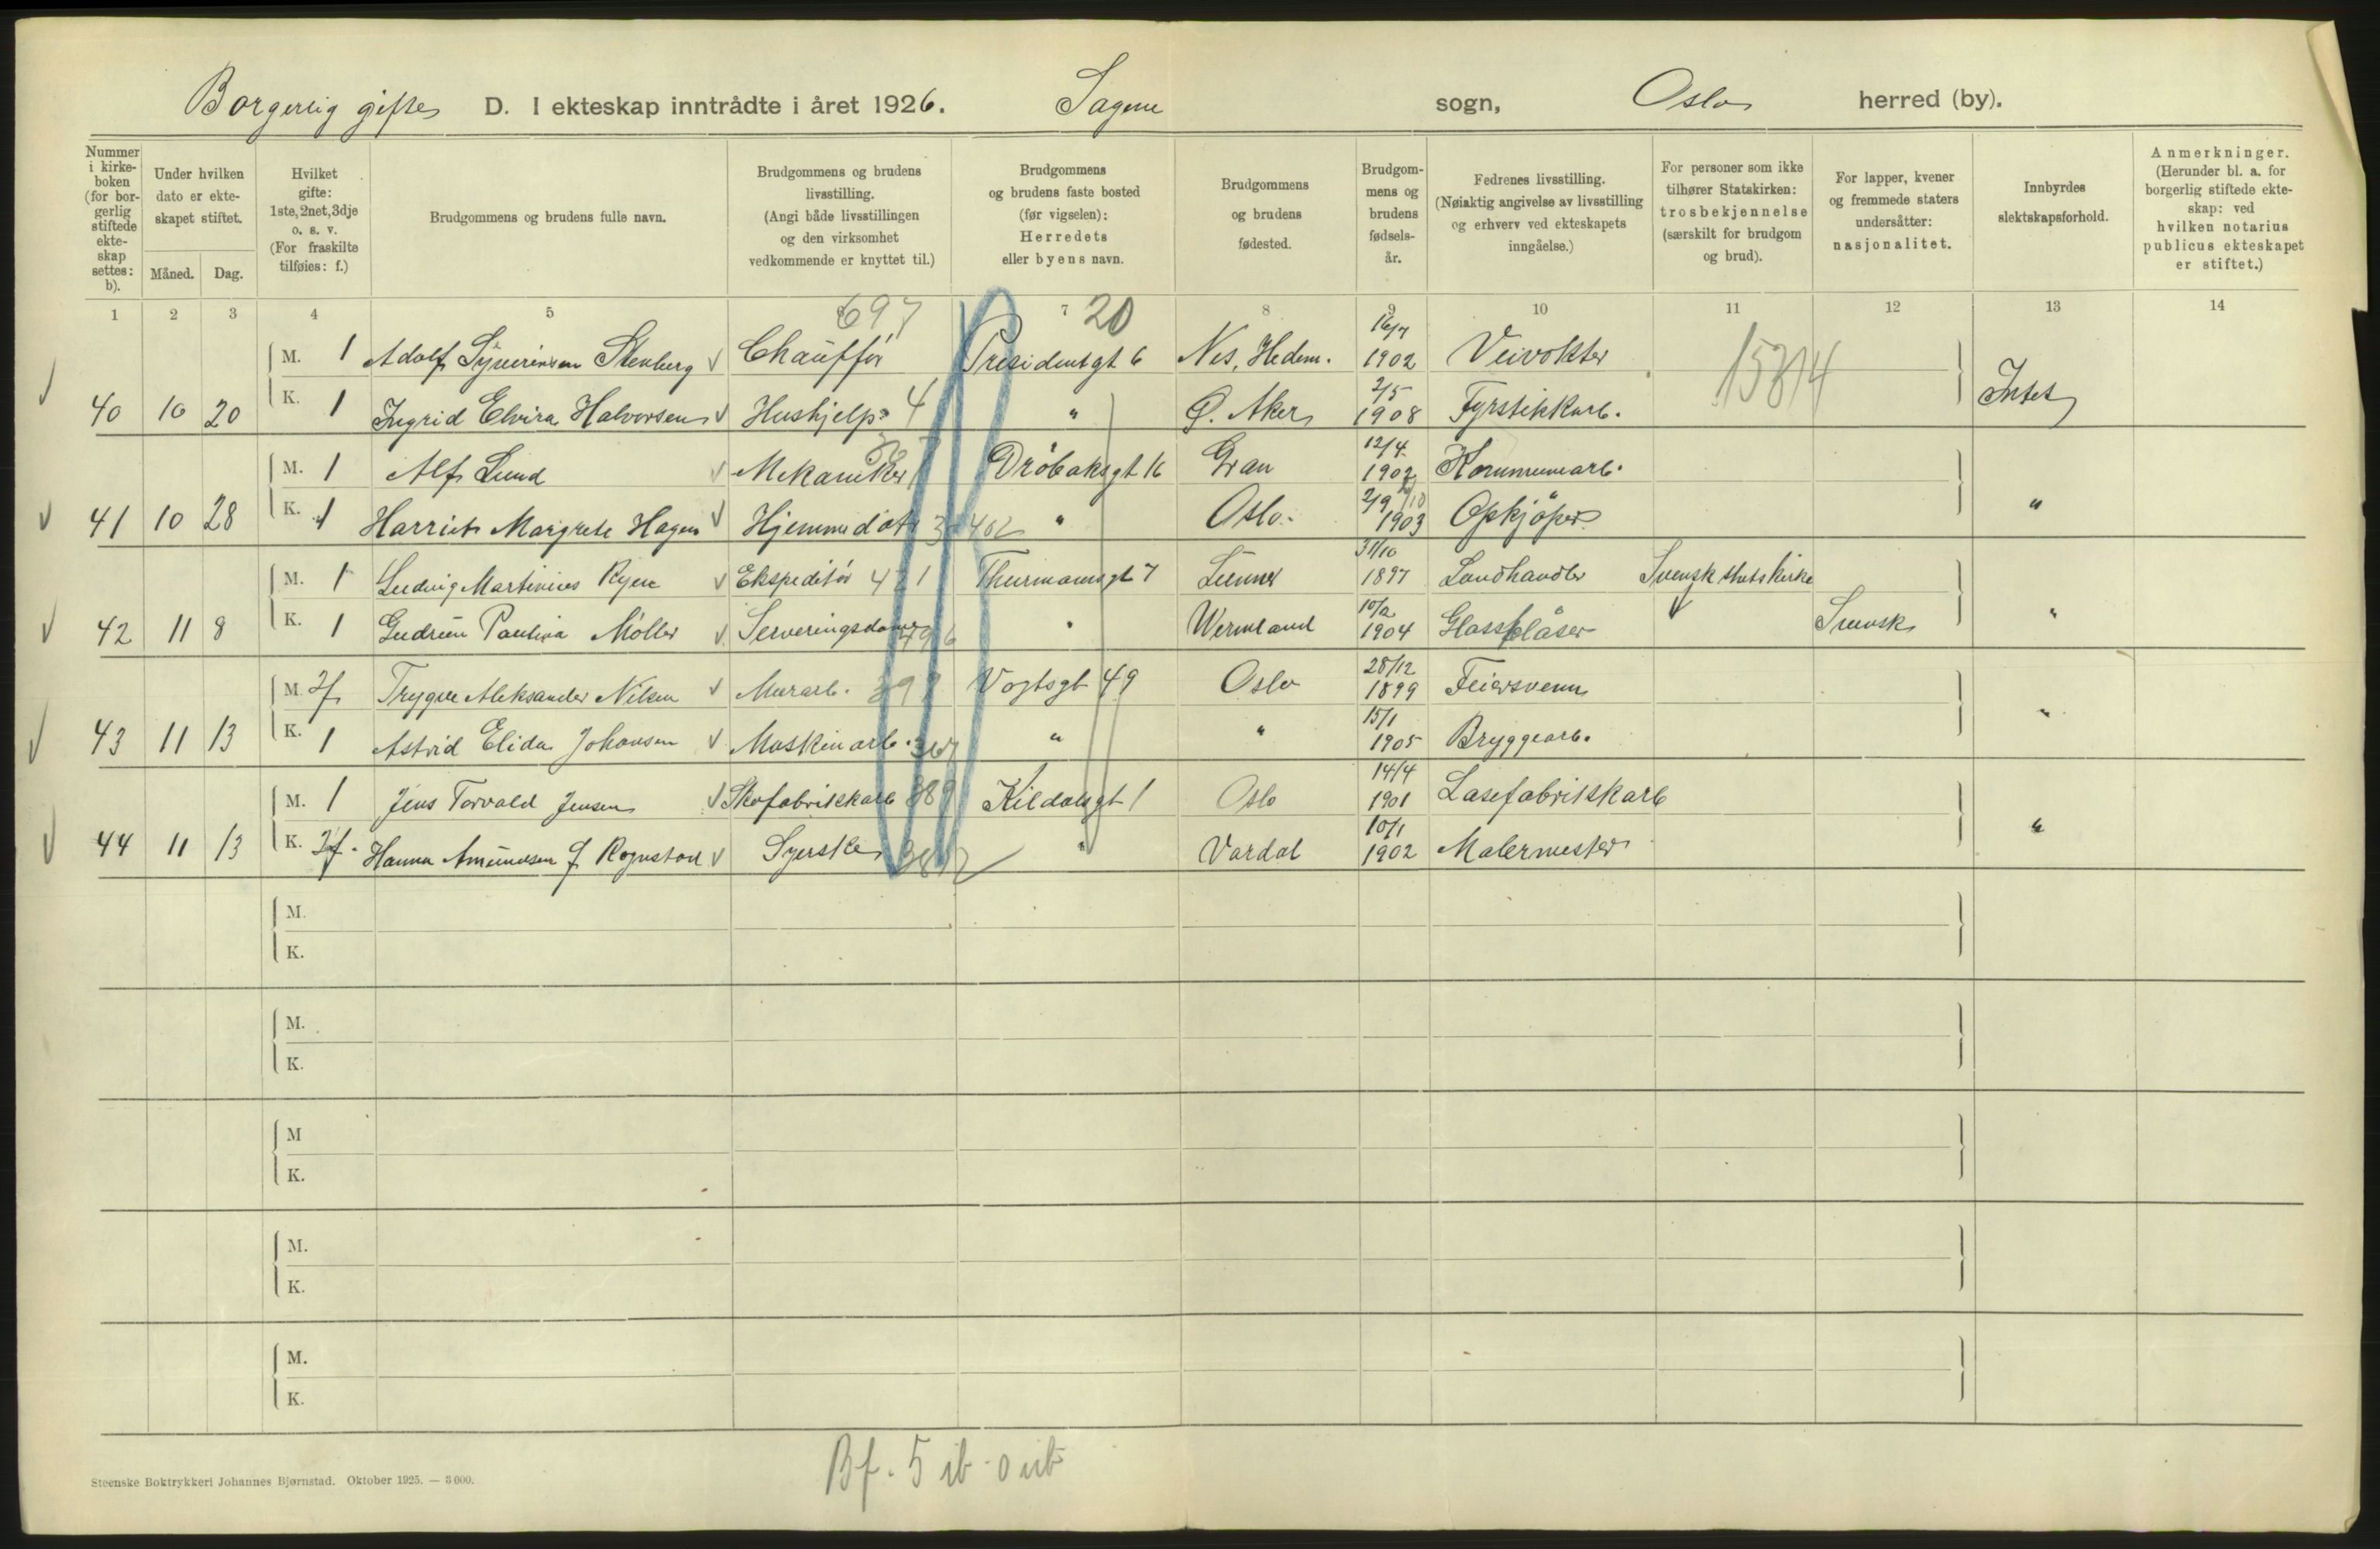 Borgerlig gifte D. I ekteskap inntrådte i året 1926. Sagene sogn, Oslo herred (by).
Nummer i kirkeboken (for borgerlig stiftede ekteskap settes: b).
Under hvilken dato er ekteskapet stiftet.
Måned. Dag.
Hvilket gifte: 1ste, 2net, 3dje o. s. v. (For fraskilte tilføies: f.)
Brudgommens og brudens fulle navn.
Brudgommens og brudens livsstilling. (Angi både livsstillingen og den virksomhet vedkommende er knyttet til.)
Brudgommens og brudens faste bosted (før vigselen): Herredets eller byens navn.
Brudgommens og brudens fødested.
Brudgommens og brudens fødselsår.
Fedrenes livsstilling. (Nøiaktig angivelse av livsstilling og erhverv ved ekteskapets inngåelse.)
For personer som ikke tilhører Statskirken: trosbekjennelse (særskilt for brudgom og brud).
For lapper, kvener og fremmede staters undersåtter: nasjonalitet.
Innbyrdes slektskapsforhold.
Anmerkninger. (Herunder bl. a. for borgerlig stiftede ekteskap: ved hvilken notarius publicus ekteskapet er stiftet.)
1 2 3 4 5 7 8 9 10 11 12 13 14
697 20
M. 1 Adolf Syverinsen Stenberg Chauffør Presidentgt 6 Nes, Hedem. 16/7 1902 Veivokter
40 10 20 K. 1 Ingrid Elvira Halvorsen Hushjelp 4 " Ø. Aker 2/5 1908 Fyrstikkarb. 15814 Intet
M. 1 Alf Lund Mekaniker Drøbaksgt 16 Gran 12/4 1902 Kommunearb.
41 10 28 K. 1 Harriet Margrete Hagen Hjemmedat. " Oslo. 2/9 1903 Opkjøper "
M. 1 Ludvig Martinius Ryen Ekspeditør 421 Thurmannsgt 7 Lunner 31/10 1897 Landhandler Svensk statskirke
42 11 8 K. 1 Gudrun Paulina Möller Serveringsdame 496 " Wermland 10/2 1904 Glassblåser Svensk "
M. 2f Trygve Aleksander Nilsen Murarb. Vogtsgt 49 Oslo 28/12 1899 Feiersvenn
43 11 13 K. 1 Astrid Elida Johansen Maskinarb. " " 15/1 1905 Bryggearb. "
M. 1 Jens Torvald Jensen Skofabrikkarb 389 Kildalsgt 1 Oslo 14/4 1901 Låsefabrikkarb
44 11 13 K. 2f. Hanna Amundsen f. Rognstad Syerske " Vardal 10/1 1902 Malermester "
M.
K.
M.
K.
M
K.
M.
K.
M.
K.
Steenske Boktrykkeri Johannes Bjørnstad. Oktober 1925. — 3000.
Bf. 5 ib 0 ub